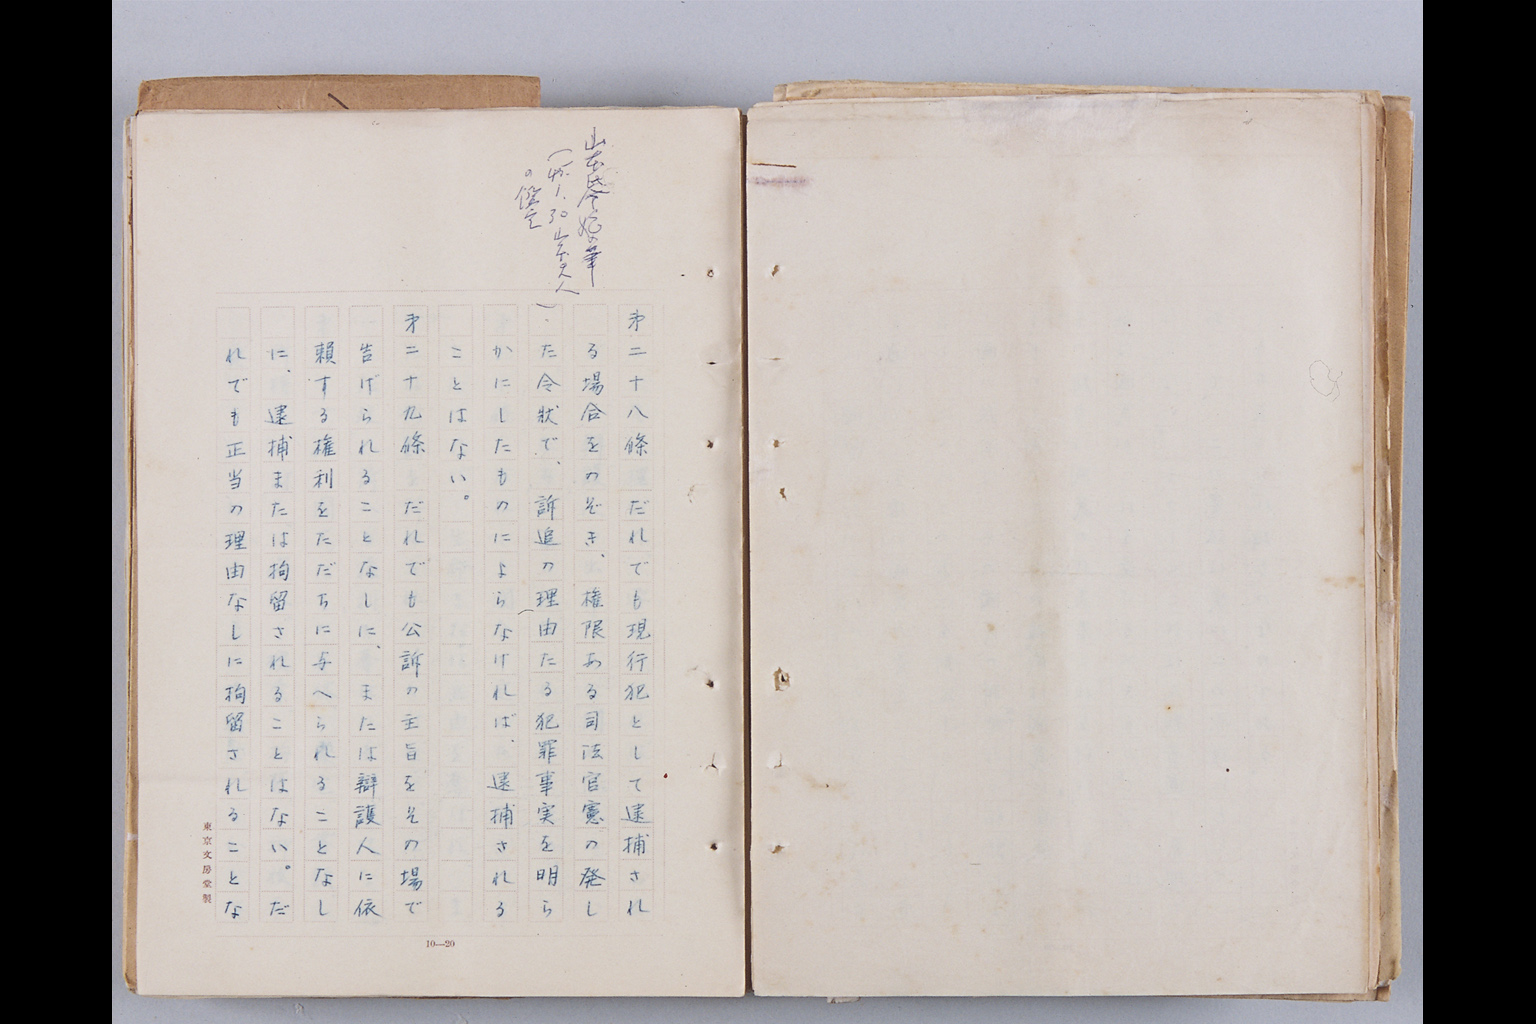 山本氏令嬢筆
(45.1.30 山本夫人
の鑑定)
第二十八條 だれでも現行犯として逮捕され
る場合をのぞき、権限ある司法官憲の発し
た令狀で、訴追の理由たる犯罪事実を明ら
かにしたものによらなければ、逮捕される
ことはない。
第二十九條 だれでも公訴の主旨をその場で
告げられることなしに、または辯護人に依
頼する権利をただちに与へられることなし
に、逮捕または拘留されることはない。だ
れでも正当の理由なしに拘留されることな
東京文房堂製
10—20